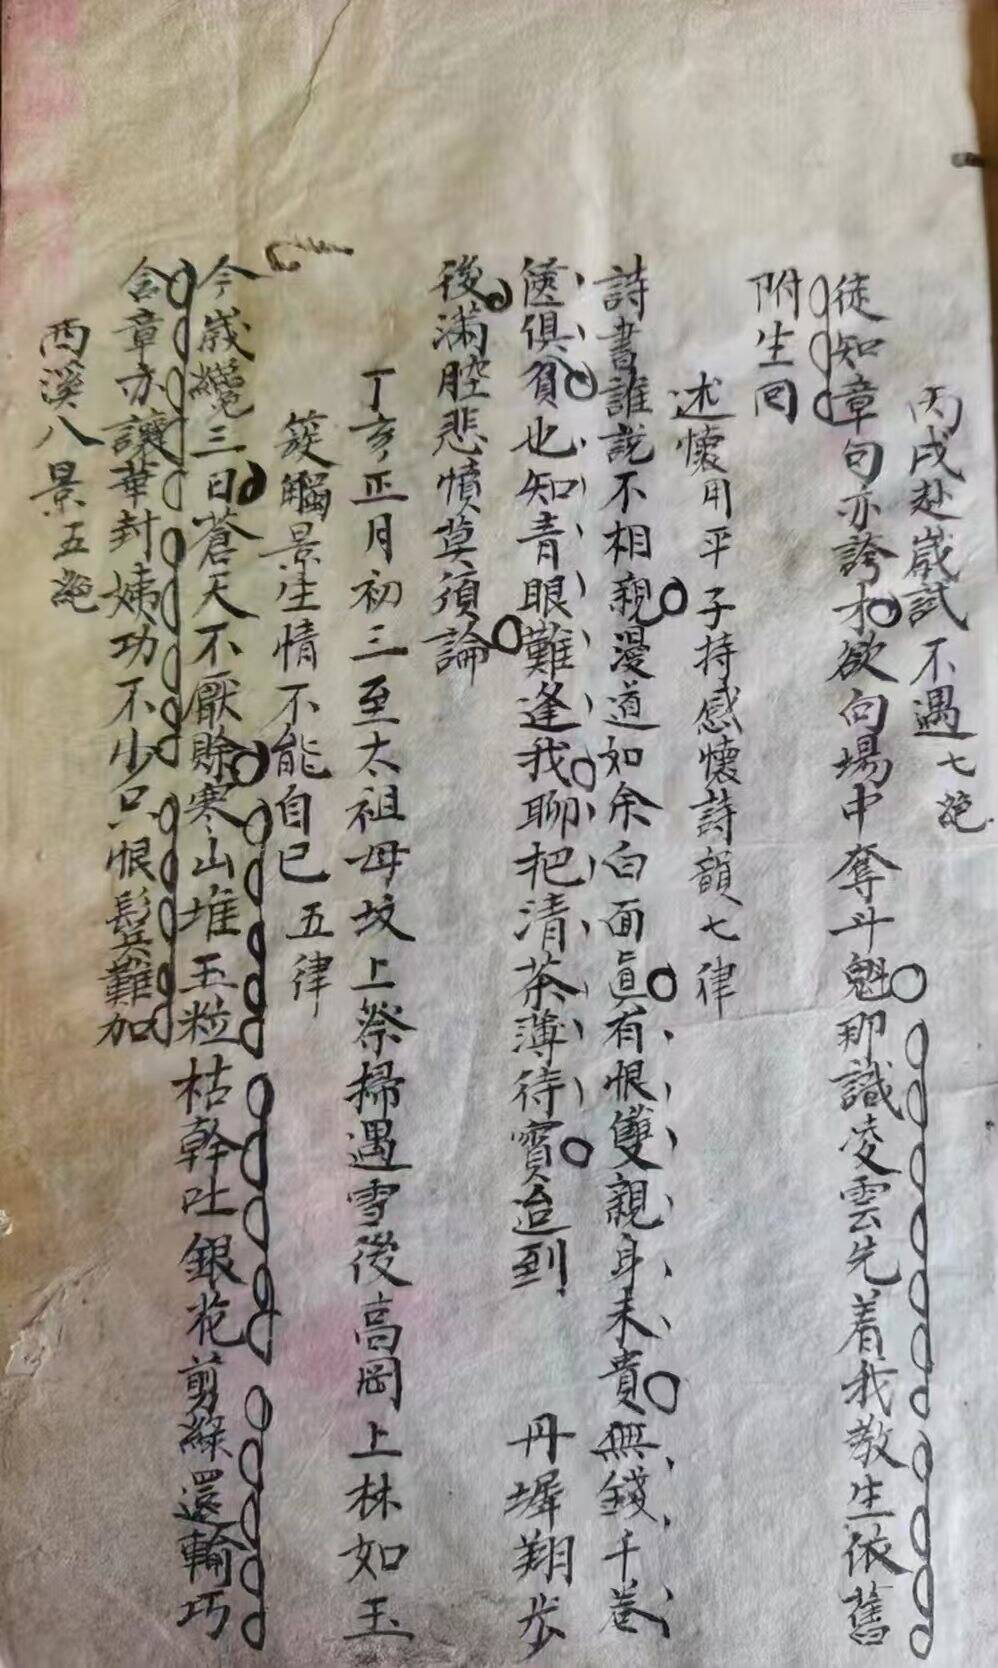 丙戌赴歲試不遇七絶
徒知章句亦誇才欲向場中奪斗魁那識凌雲先着我教生依舊
附生回
述懷用平子持感懷詩韻七律
詩書誰說不相親漫道如余白面眞有恨雙親身未貴無錢千卷
俱貧也知青眼難逢我聊把清茶薄待賓迨到丹墀翔步
後滿腔悲憤莫須論
丁亥正月初三至太祖母坟上祭掃遇雪後高岡上林如玉
簇觸景生情不能自已五律
今歲纔三日蒼天不厭賖寒山堆玉粒枯幹吐銀花剪綵還輸巧
含章亦讓華封姨功不少只恨鬂難加
西溪八景五絶